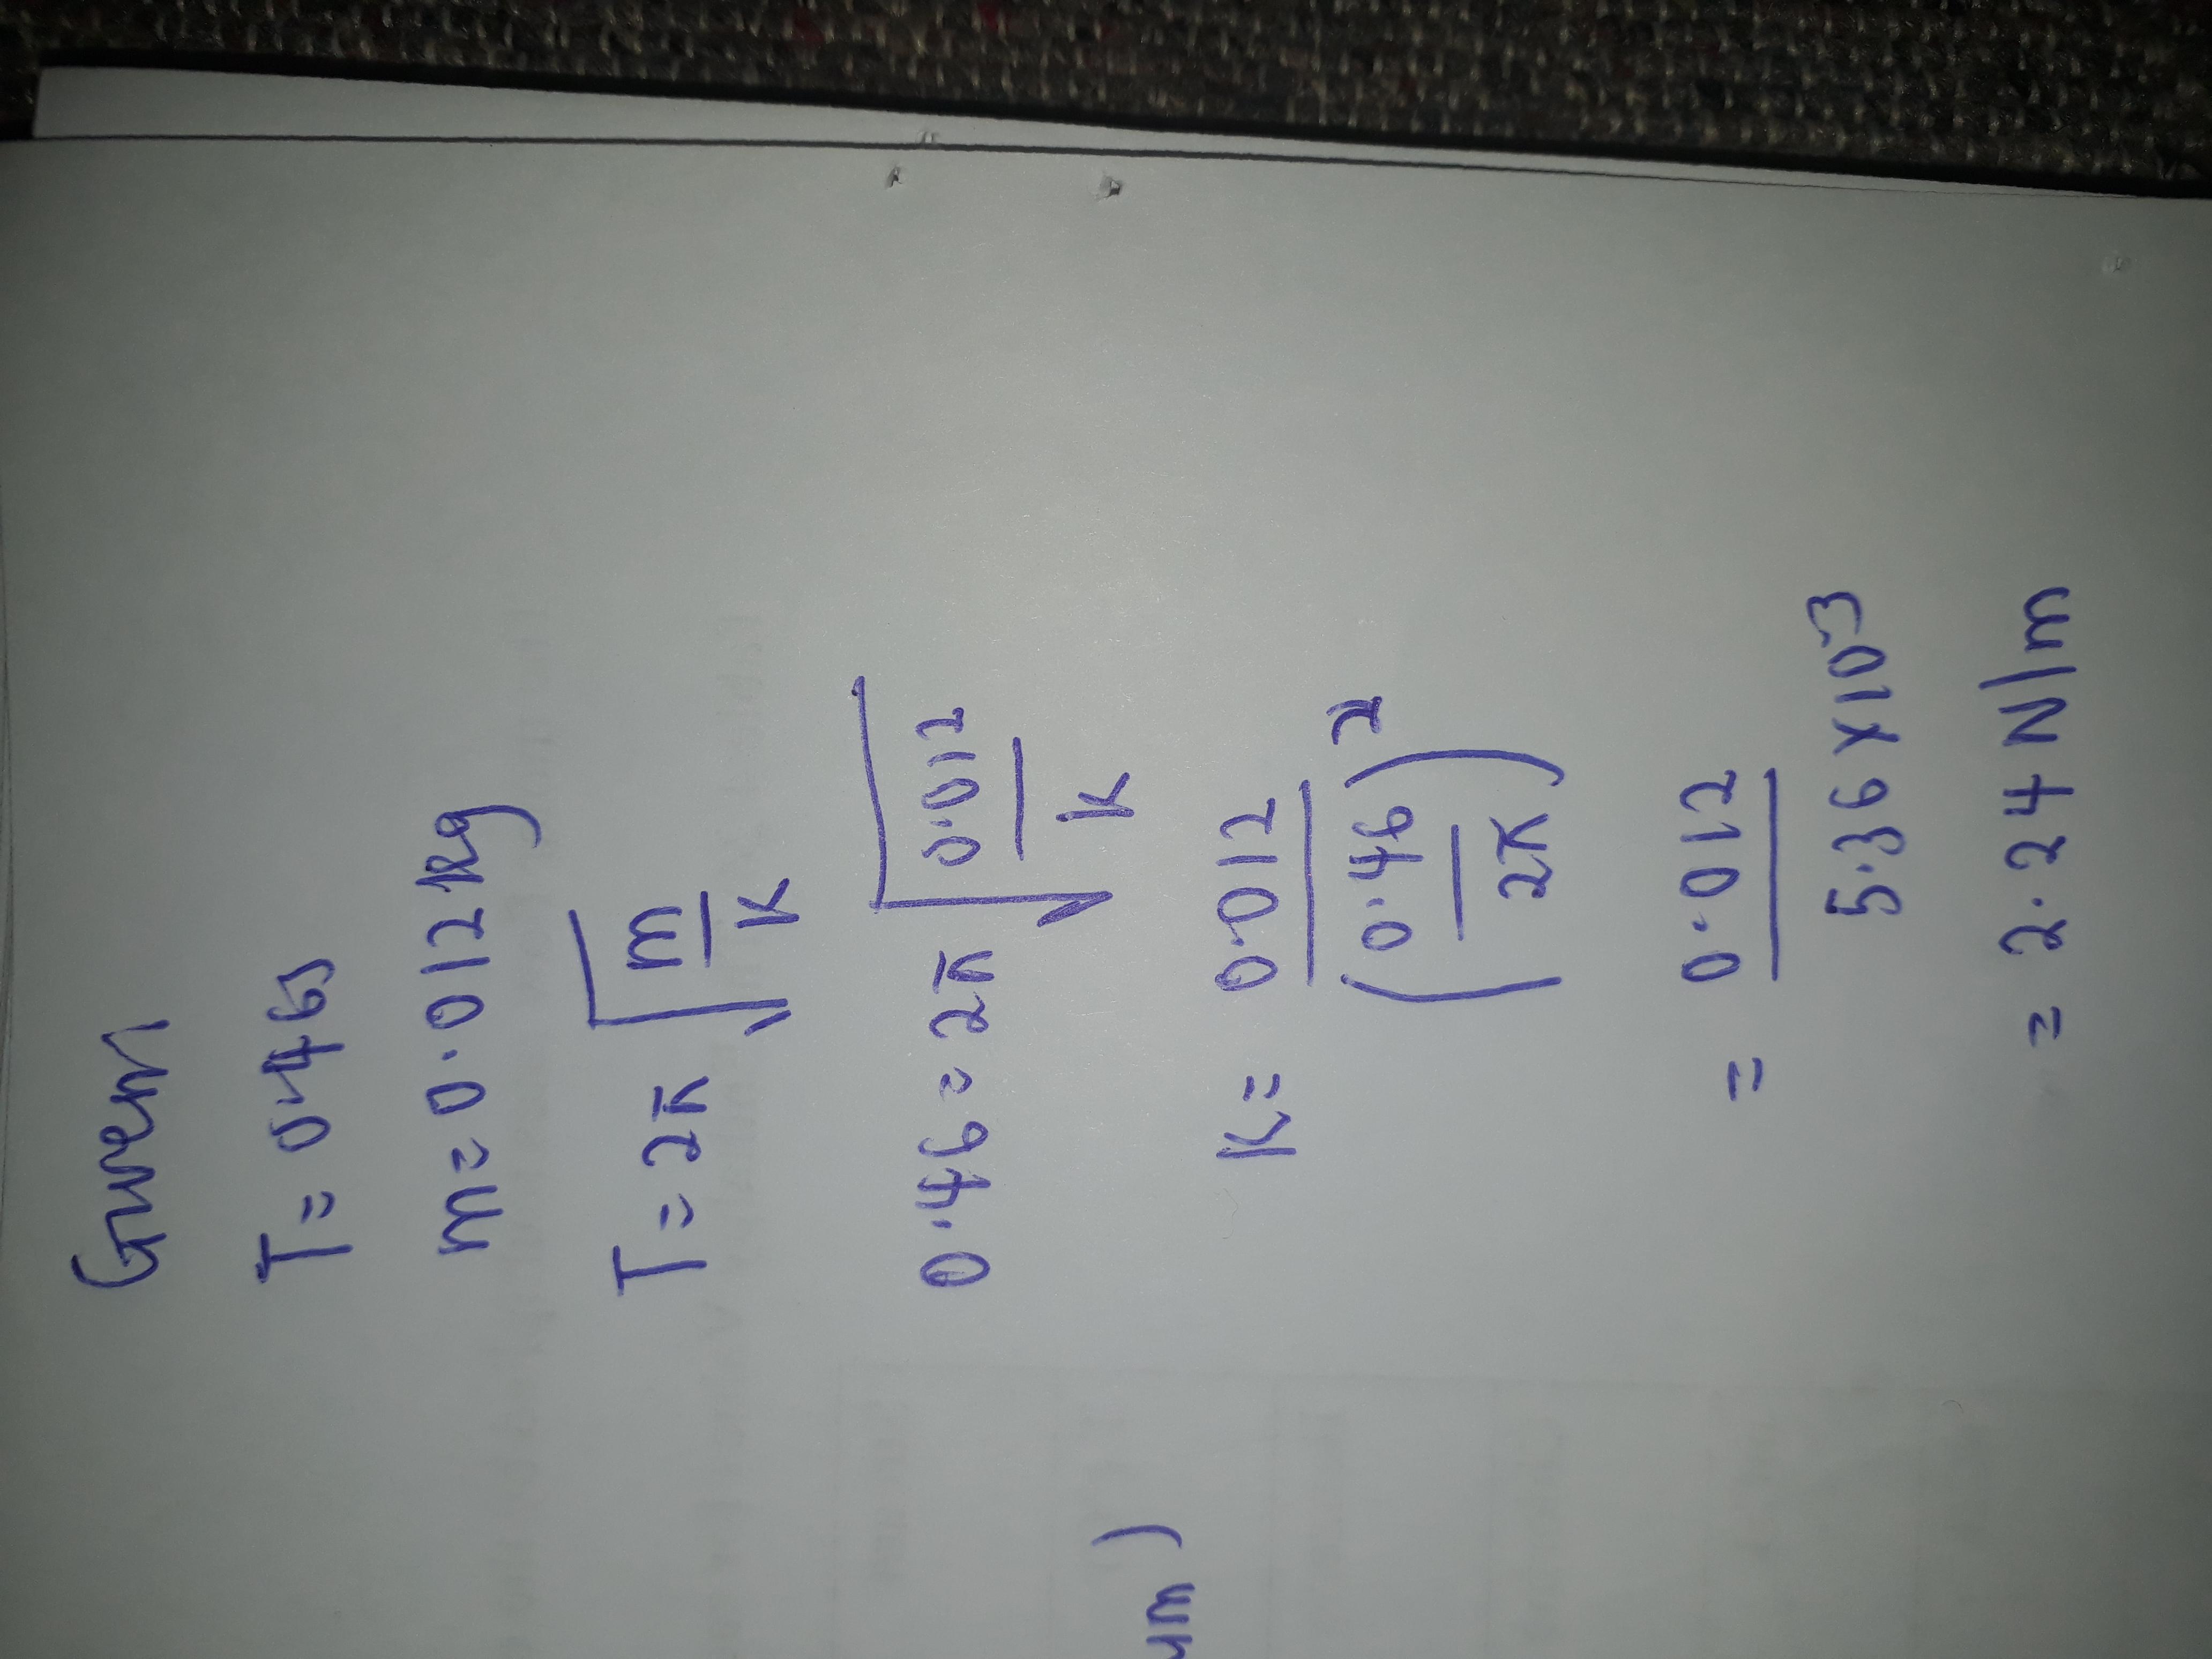 Given
T = 0.46s
m = 0.012 kg
T = 2π √(m/K)
0.46 = 2π √(0.012/K)
K = 0.012/(0.46/2π)²
= 0.012/5.36 × 10⁻³
= 2.24 N/m
um)